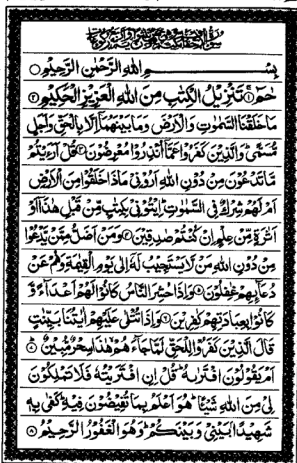 بِسْمِ اللهِ الرَّحْمٰنِ الرَّحِيْمِ
حٰمٓ ① تَنْزِيْلُ الْكِتٰبِ مِنَ اللهِ الْعَزِيْزِ الْحَكِيْمِ ②
مَا خَلَقْنَا السَّمٰوٰتِ وَالْاَرْضَ وَمَا بَيْنَهُمَآ اِلَّا بِالْحَقِّ وَاَجَلٍ
مُّسَمًّى ؕ وَالَّذِيْنَ كَفَرُوْا عَمَّآ اُنْذِرُوْا مُعْرِضُوْنَ ③ قُلْ اَرَءَيْتُمْ
مَّا تَدْعُوْنَ مِنْ دُوْنِ اللهِ اَرُوْنِيْ مَاذَا خَلَقُوْا مِنَ الْاَرْضِ
اَمْ لَهُمْ شِرْكٌ فِي السَّمٰوٰتِ ؕ اِيْتُوْنِيْ بِكِتٰبٍ مِّنْ قَبْلِ هٰذَآ اَوْ
اَثٰرَةٍ مِّنْ عِلْمٍ اِنْ كُنْتُمْ صٰدِقِيْنَ ④ وَمَنْ اَضَلُّ مِمَّنْ يَّدْعُوْا
مِنْ دُوْنِ اللهِ مَنْ لَّا يَسْتَجِيْبُ لَهٗٓ اِلٰى يَوْمِ الْقِيٰمَةِ وَهُمْ عَنْ
دُعَآئِهِمْ غٰفِلُوْنَ ⑤ وَاِذَا حُشِرَ النَّاسُ كَانُوْا لَهُمْ اَعْدَآءً وَّ
كَانُوْا بِعِبَادَتِهِمْ كٰفِرِيْنَ ⑥ وَاِذَا تُتْلٰى عَلَيْهِمْ اٰيٰتُنَا بَيِّنٰتٍ
قَالَ الَّذِيْنَ كَفَرُوْا لِلْحَقِّ لَمَّا جَآءَهُمْ هٰذَا سِحْرٌ مُّبِيْنٌ ⑦
اَمْ يَقُوْلُوْنَ افْتَرٰىهُ ؕ قُلْ اِنِ افْتَرَيْتُهٗ فَلَا تَمْلِكُوْنَ
لِيْ مِنَ اللهِ شَيْئًا ؕ هُوَ اَعْلَمُ بِمَا تُفِيْضُوْنَ فِيْهِ ؕ كَفٰى بِهٖ
شَهِيْدًۢا بَيْنِيْ وَبَيْنَكُمْ ؕ وَهُوَ الْغَفُوْرُ الرَّحِيْمُ ⑧